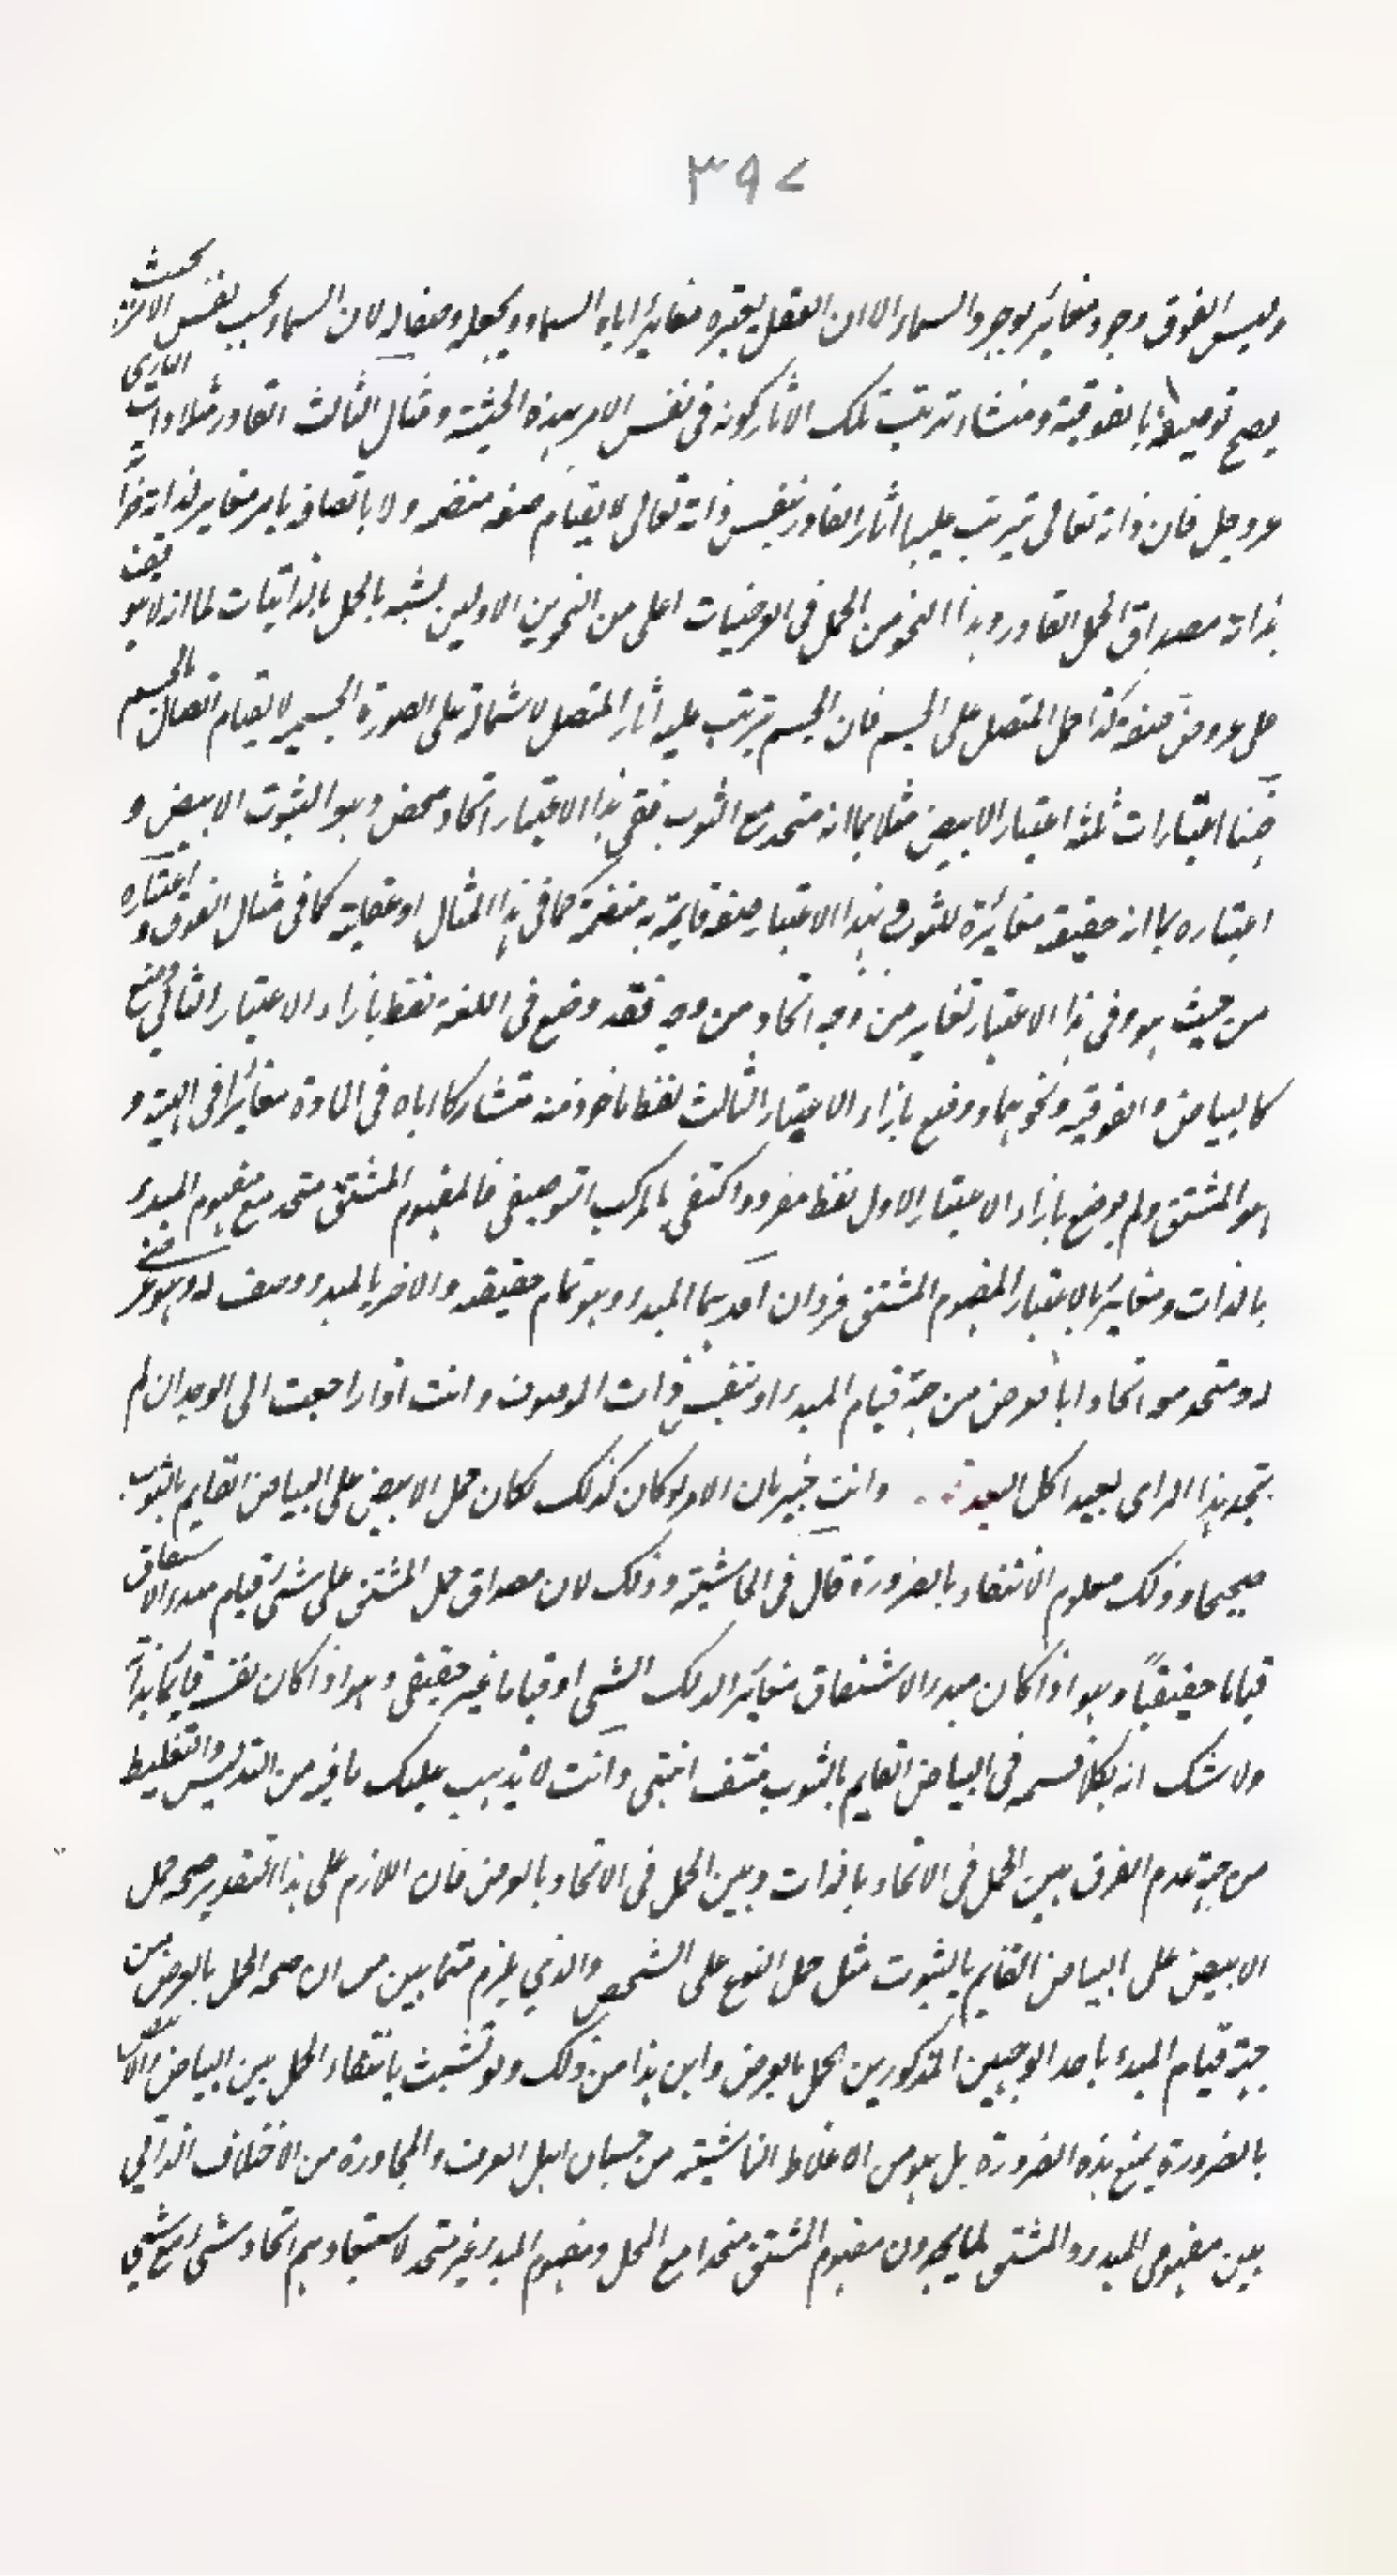 ٣٩٧
وليس للفوق وجود مغائر لوجود السماء الا ان العقل يعتبره مغايرا اياه السماء ويجعله وصفا له لان السماء بحسب نفس الامر بحيث
يصح توصيفه بالفوقية ومنشاء ترتب تلك الاثار كونه فى نفس الامر بهذه الحيثية ومثال الثالث القادر مثلا وذات البارى
عز وجل فان ذاته تعالى تترتب عليها اثار القادر بنفس ذاته تعالى لا بقيام صفة منضمة ولا باتصافه بامر مغاير لذاته
بذاته مصداق لحمل القادر وهذا النحو من الحمل فى العرضيات اعلى من النحوين الاولين يشبه بالحمل بالذاتيات لما انه لا يتوقف
على عروض صفة كذا حمل المتصل على الجسم فان الجسم يترتب عليه اثار المتصل لاشتماله على الصورة الجسمية لا بقيام اتصال بالجسم
هنا اعتبارات ثلثة اعتبار الابيض مثلا بما انه متحد مع الثوب ففى هذا الاعتبار اتحاد محض وهو الثبوت الابيض و
اعتباره بما انه حقيقة مغائرة للثوب فهو بهذا الاعتبار صفة قايمة به منضمة كما فى هذا المثال او عقلية كما فى مثال الفوق و اعتباره
من حيث هو وفى هذا الاعتبار تغاير من وجه اتحاد من وجه فقد وضع فى اللغة لفظ بازاء الاعتبار الثانى
كالبياض والفوقية ونحوهما ووضع بازاء الاعتبار الثالث لفظ ماخوذ منه متشاركا اياه فى المادة مغائرا فى الهيئة و
هو المشتق ولم يوضع بازاء الاعتبار الاول لفظ مفرد واكتفى بالمركب التوصيفى فالمفهوم المشتق متحد مع مفهوم المبدء
بالذات ومغائر بالاعتبار المفهوم المشتق فردان احدهما المبدء وهو تمام حقيقته والاخر يا لمبدء وصف له وهو عرضى
له ومتحد معه اتحادا بالعرض من جهة قيام المبدء او بنفس ذات الموصوف وانت اذا راجعت الى الوجدان لم
تجد هذا الراى بعيدا كل البعد وانت خبير بان الامر لو كان كذلك لكان حمل الابيض على البياض القايم بالثوب
صحيحا وذلك معلوم الانتفاء بالضرورة قال فى الحاشية وذلك لان مصداق حمل المشتق على شئ قيام مبدء الاشتقاق
قياما حقيقيا وهو اذا كان مبدء الاشتقاق مغائرا لذلك الشئ او قياما غير حقيقى وهو اذا كان نفسه قائما بذاته
ولا شك انه بكلا قسميه فى البياض القايم بالثوب منتف انتهى وانت لا يذهب عليك ما فيه من التدليس والتغليط
من جهة عدم الفرق بين الحمل فى الاتحاد بالذات وبين الحمل فى الاتحاد بالعرض فان اللازم على هذا التقدير صحة حمل
الابيض على البياض القايم بالثبوت مثل حمل النوع على الشخص والذي يلزم مما بين من ان صحة الحمل بالعرض من
جهة قيام المبدء باحد الوجهين المذكورين لحمل بالعرض واين هذا من ذلك ولو تشبث بانتفاء الحمل بين البياض والابيض
بالضرورة يمنع هذه الضرورة بل هو من الاغلاط الناشية من حسبان اهل العرف والمحاورة من الاختلاف الذاتى
بين مفهومى المبدء والمشتق لما يجدون مفهوم المشتق متحدا مع المحل ومفهوم المبدء غير متحد لاستبعادهم اتحاد شئ مع شئ